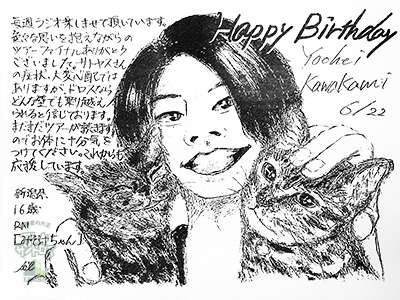 毎週ラジオ楽しませて頂いています。
色々な思いを抱えながらの
ツアーファイナルありがとう
ございました。サトヤスさん
の症状、大変心配では
ありますが、ドロスなら
どんな壁でも乗り越え
られると信じております。
まだまだツアーが続きます
のでお体に十分気を
つけてください。これからも
応援しています。
新潟県
16歳
RN
Happy Birthday
Yohei
Kawakami
6/22